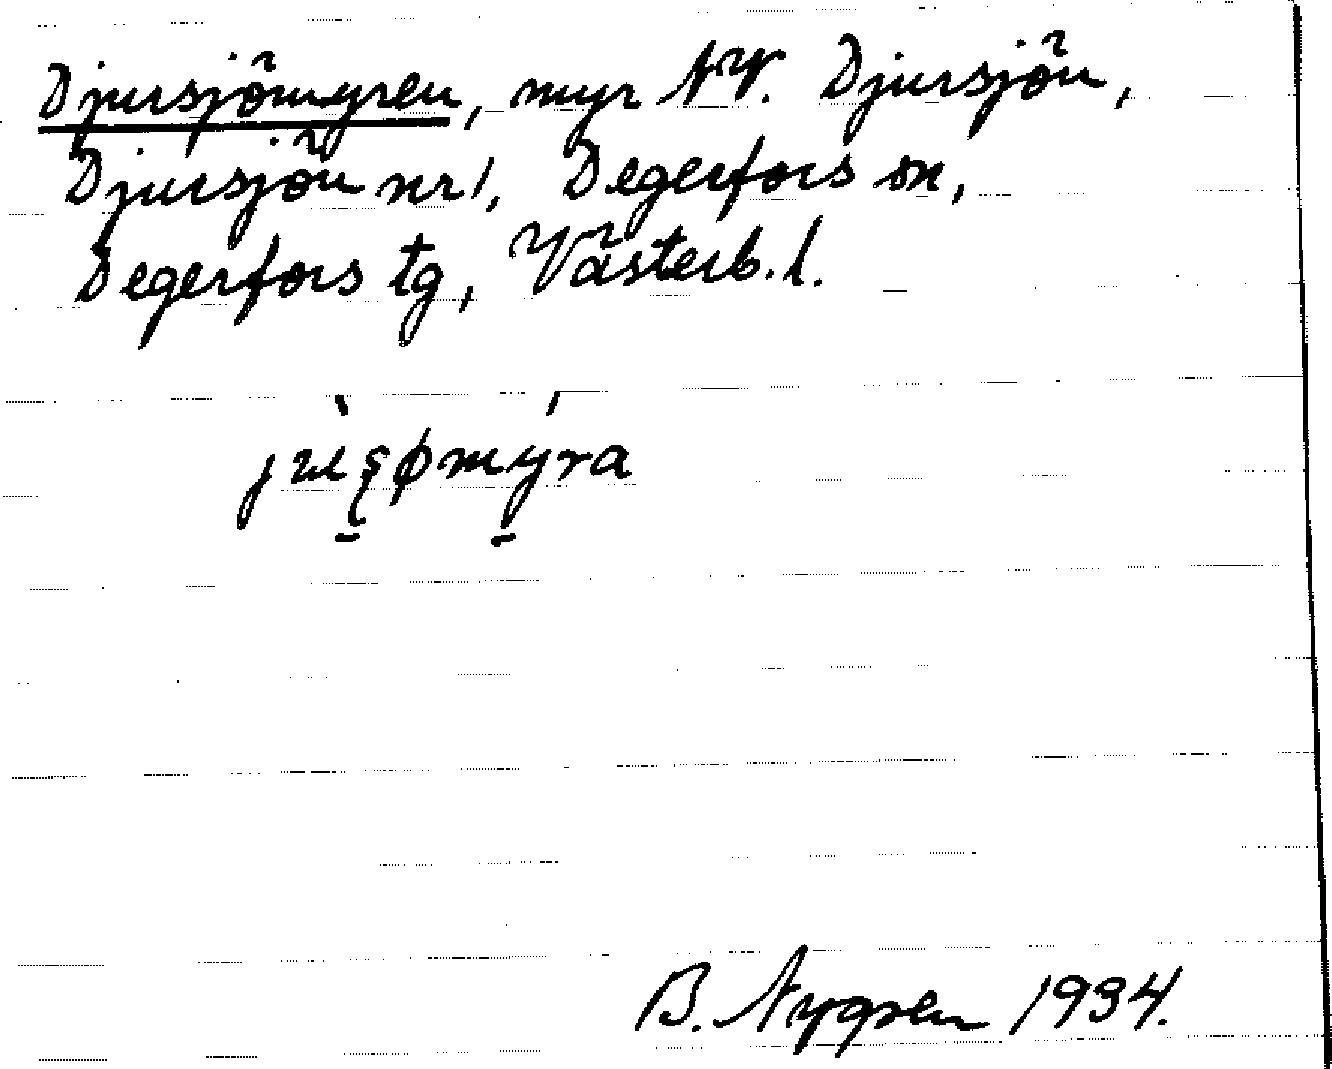 Djursjömyren, myr NV. Djursjön,
Djursjön nr 1, Degerfors sn,
Degerfors tg, Västerb. l.
B. Nygren 1934.